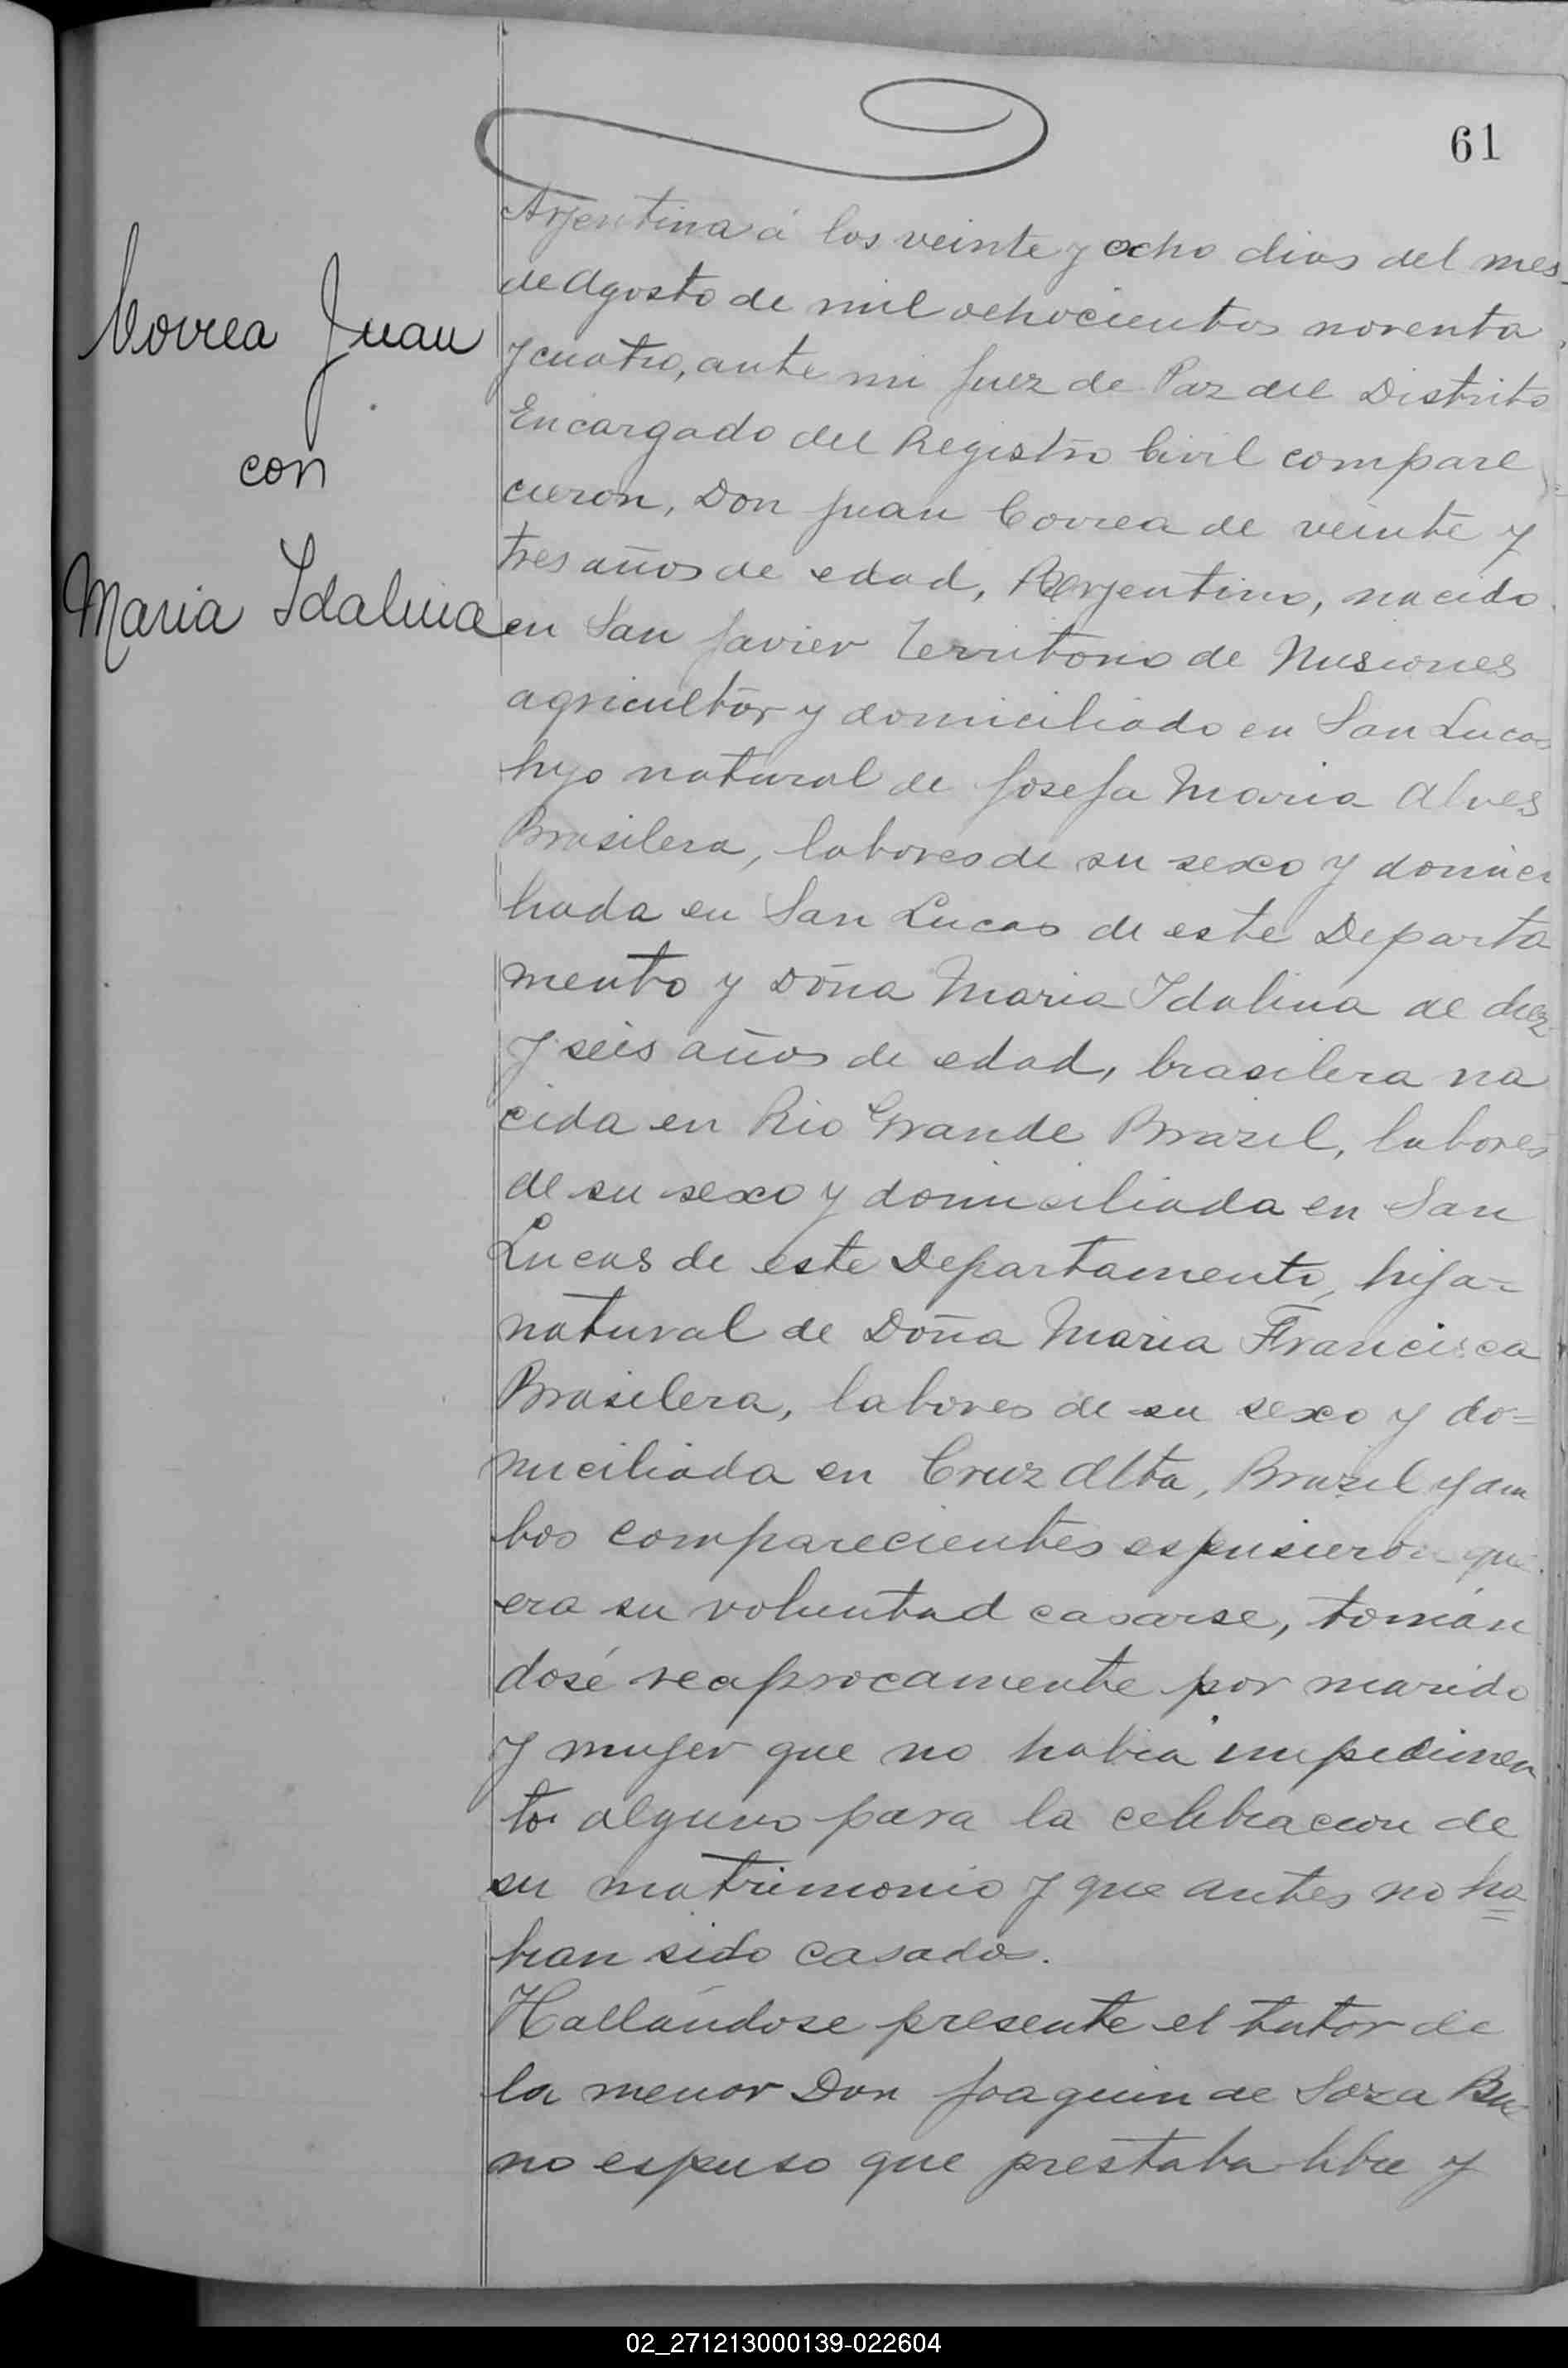 61
Correa Juan
con
Maria Idalina
Arjentina á los veinte y ocho dias del mes
de Agosto de mil ochocientos noventa
y cuatro, ante mi Juez de Paz del Distrito
Encargado del Registro Civil compare
cieron, Don Juan Correa de veinte y
tres años de edad, Arjentino, nacido
en San Javier Territorio de Misiones
agricultor y domiciliado en San Lucas
hijo natural de Josefa Maria Alves
Brasilera, labores de su sexo y domici
liada en San Lucas de este Departa
mento y Doña Maria Idalina de diez
y seis años de edad, brasilera na
cida en Rio Grande Brazil, labores
de su sexo y domiciliada en San
Lucas de este Departamento, hija=
natural de Doña Maria Francisca
Brasilera, labores de su sexo y do=
miciliada en Cruz Alta, Brazil y am
bos comparecientes espusieron que
era su voluntad casarse, tomán
dosé reciprocamente por marido
y mujer que no habia impedimen
to alguno para la celebracion de
su matrimonio y que antes no ha=
bian sido casados.
Hallándose presente el tutor de
la menor Don Joaquin de Soza Bue
no espuso que prestaba libre y
02_271213000139-022604